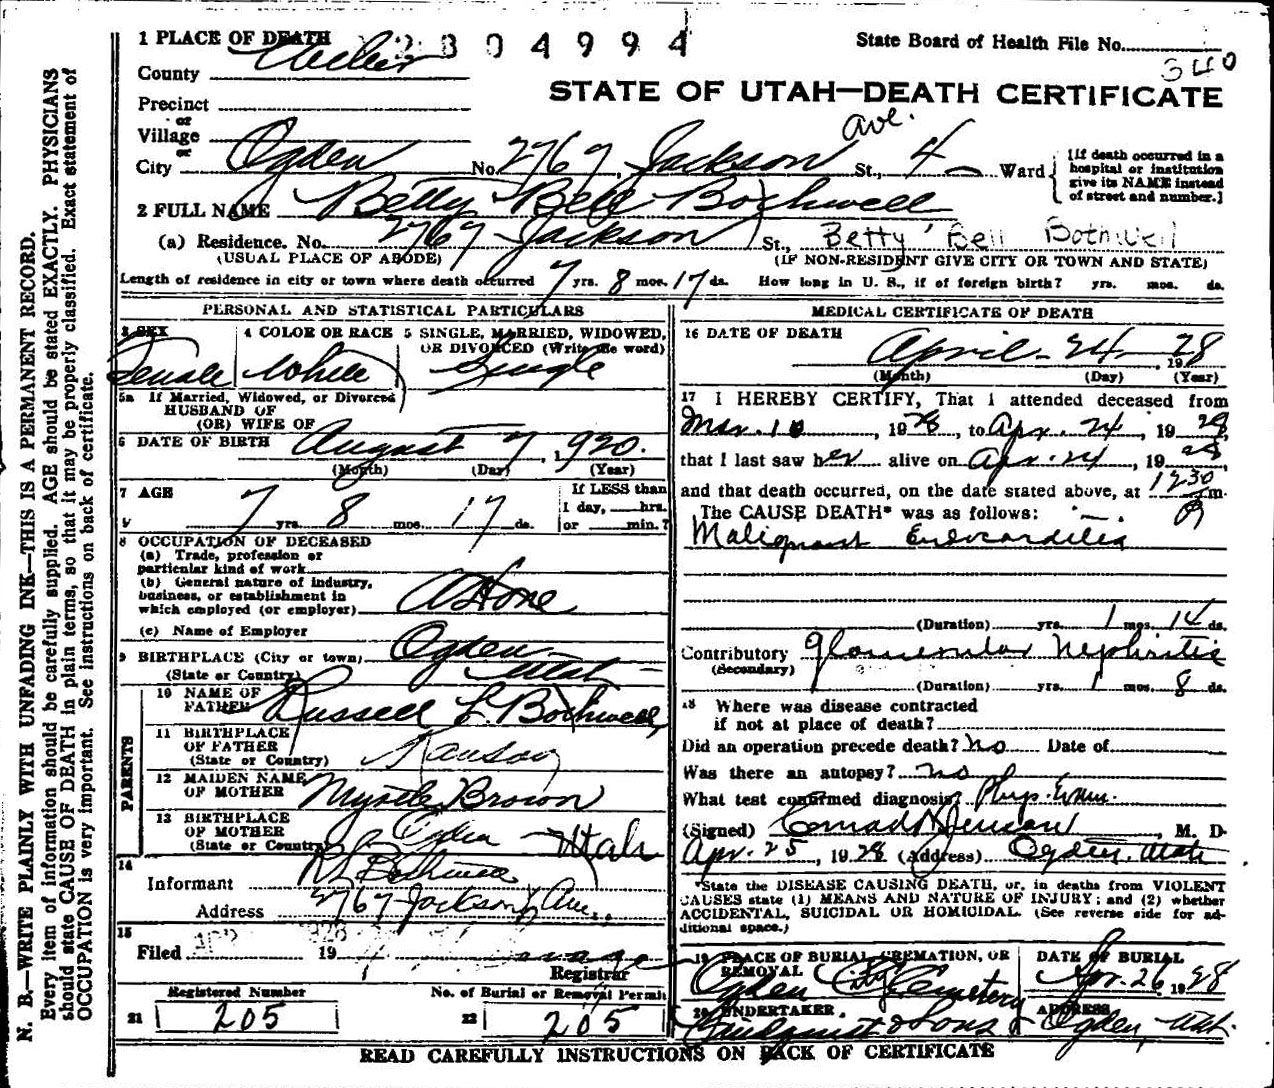 1 PLACE OF DEATH
304994
State Board of Health File No.
340
County Weber
STATE OF UTAH—DEATH CERTIFICATE
Precinct
or
Village
or
City Ogden No. 2767 Jackson Ave. St., 4 Ward
[If death occurred in a hospital or institution give its NAME instead of street and number.]
2 FULL NAME Betty Bell Bothwell
(a) Residence. No. 2767 Jackson St., Betty Bell Bothwell
(USUAL PLACE OF ABODE) (IF NON-RESIDENT GIVE CITY OR TOWN AND STATE)
Length of residence in city or town where death occurred 7 yrs. 8 mos. 17 ds. How long in U. S., if of foreign birth? yrs. mos. ds.
PERSONAL AND STATISTICAL PARTICULARS
3 SEX
Female
4 COLOR OR RACE
White
5 SINGLE, MARRIED, WIDOWED,
OR DIVORCED (Write the word)
Single
5a If Married, Widowed, or Divorced
HUSBAND OF
(OR) WIFE OF
6 DATE OF BIRTH August 7, 1920.
(Month) (Day) (Year)
7 AGE
7 yrs. 8 mos. 17 ds.
If LESS than
1 day, hrs.
or min.?
8 OCCUPATION OF DECEASED
(a) Trade, profession or
particular kind of work
(b) General nature of industry,
business, or establishment in
which employed (or employer) At Home
(c) Name of Employer
9 BIRTHPLACE (City or town) Ogden
(State or Country) Utah
PARENTS
10 NAME OF
FATHER Russell L Bothwell
11 BIRTHPLACE
OF FATHER
(State or Country) Kansas
12 MAIDEN NAME
OF MOTHER Myrtle Brown
13 BIRTHPLACE
OF MOTHER
(State or Country) Ogden Utah
14
Informant R L Bothwell
Address 2767 Jackson Ave.
15
Filed APR 1928 19
Registrar
Registered Number
21 205
No. of Burial or Removal Permit
22 205
MEDICAL CERTIFICATE OF DEATH
16 DATE OF DEATH
April 24 1928
(Month) (Day) (Year)
17 I HEREBY CERTIFY, That I attended deceased from
Mar. 10, 1928, to Apr. 24, 1928,
that I last saw her alive on Apr. 24, 1928
and that death occurred, on the date stated above, at 1230 P m.
The CAUSE DEATH* was as follows:
Malignant Endocarditis
(Duration) yrs. 1 mos. 14 ds.
Contributory Glomerular Nephritis
(Secondary)
(Duration) yrs. 1 mos. 8 ds.
18 Where was disease contracted
if not at place of death?
Did an operation precede death? No Date of
Was there an autopsy? no
What test confirmed diagnosis? Phys. Exam.
(Signed) Conrad H Jenson, M. D.
Apr. 25, 1928 (Address) Ogden, Utah
*State the DISEASE CAUSING DEATH, or, in deaths from VIOLENT
CAUSES state (1) MEANS AND NATURE OF INJURY; and (2) whether
ACCIDENTAL, SUICIDAL OR HOMICIDAL. (See reverse side for ad-
ditional space.)
19 PLACE OF BURIAL, CREMATION, OR
REMOVAL
Ogden City Cemetery
DATE OF BURIAL
Apr. 26 1928
20 UNDERTAKER
Lindquist & Sons
ADDRESS
Ogden, Utah.
READ CAREFULLY INSTRUCTIONS ON BACK OF CERTIFICATE
N. B.—WRITE PLAINLY WITH UNFADING INK—THIS IS A PERMANENT RECORD.
Every item of information should be carefully supplied. AGE should be stated EXACTLY. PHYSICIANS
should state CAUSE OF DEATH in plain terms, so that it may be properly classified. Exact statement of
OCCUPATION is very important. See instructions on back of certificate.